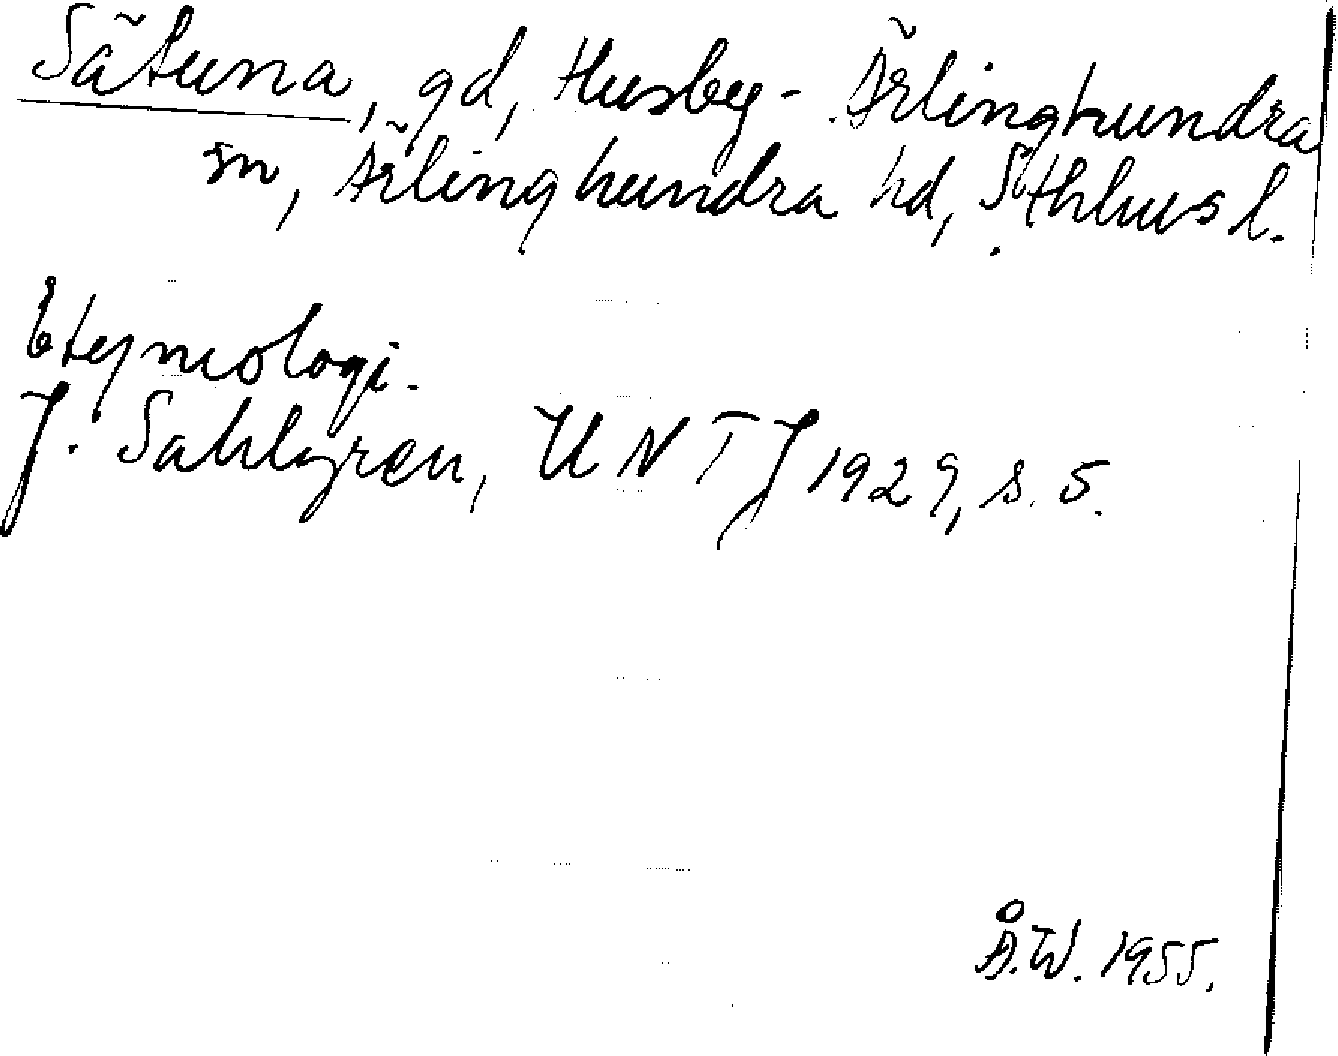 Sätuna, gd, Husby-Ärlinghundra
sn, Ärlinghundra hd, Sthlms l.
Etymologi.
J. Sahlgren, UNTJ 1929, s. 5.
Å.W. 1955.